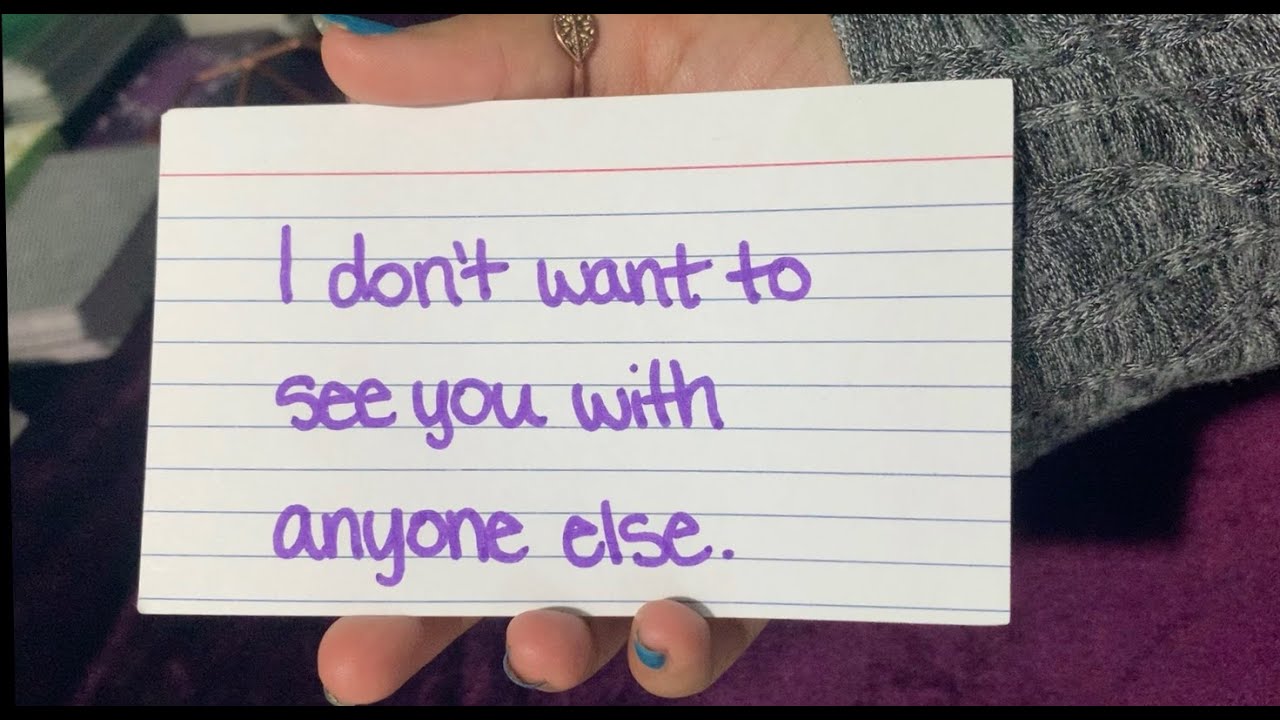 I don't want to
see you with
anyone else.